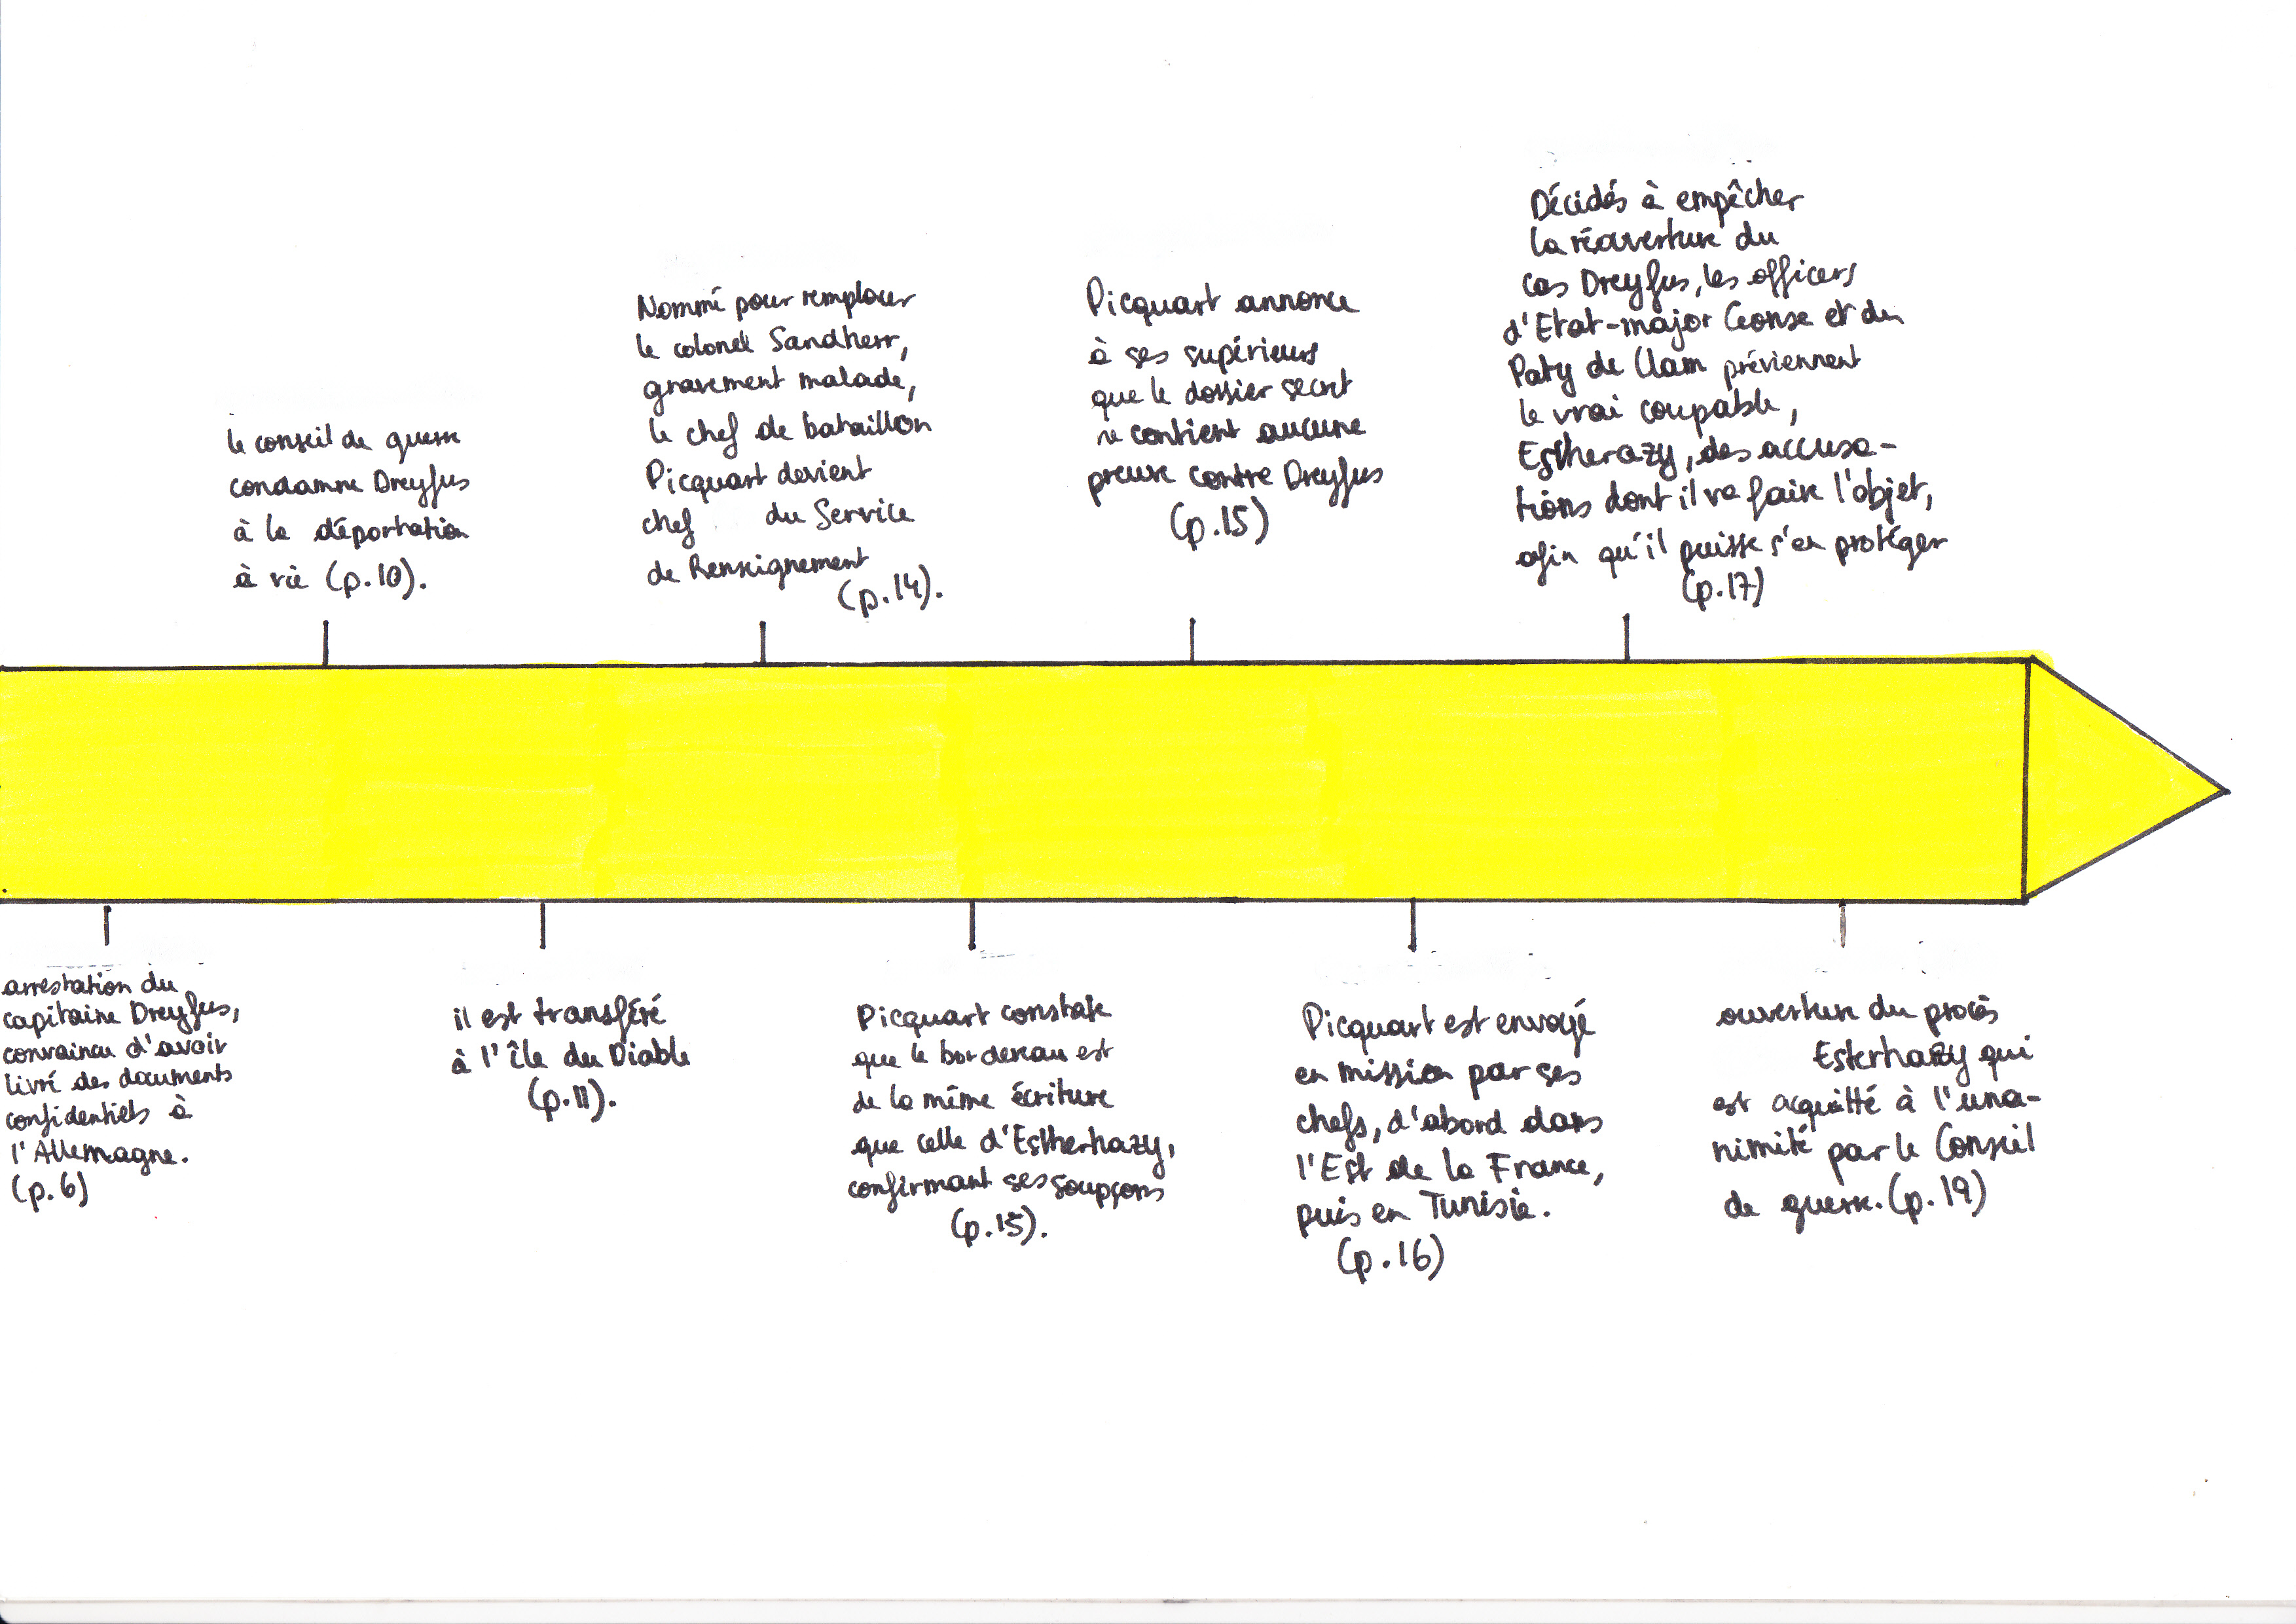 Décidés à empêcher
la réouverture du
cas Dreyfus, les officiers
d'Etat-major Gonse et du
Paty de Clam préviennent
le vrai coupable,
Estherazy, des accusa-
tions dont il va faire l'objet,
afin qu'il puisse s'en protéger
(p.17)
Picquart annonce
à ses supérieurs
que le dossier secret
ne contient aucune
preuve contre Dreyfus
(p.15)
Nommé pour remplacer
le colonel Sandherr,
gravement malade,
le chef de bataillon
Picquart devient
chef du Service
de Renseignement
(p.14).
le conseil de guerre
condamne Dreyfus
à la déportation
à vie (p.10).
arrestation du
capitaine Dreyfus,
convaincu d'avoir
livré des documents
confidentiels à
l'Allemagne.
(p.6)
il est transféré
à l'île du Diable
(p.11).
Picquart constate
que le bordereau est
de la même écriture
que celle d'Estherhazy,
confirmant ses soupçons
(p.15).
Picquart est envoyé
en mission par ses
chefs, d'abord dans
l'Est de la France,
puis en Tunisie.
(p.16)
ouverture du procès
Esterhazy qui
est acquitté à l'una-
nimité par le Conseil
de guerre. (p.19)